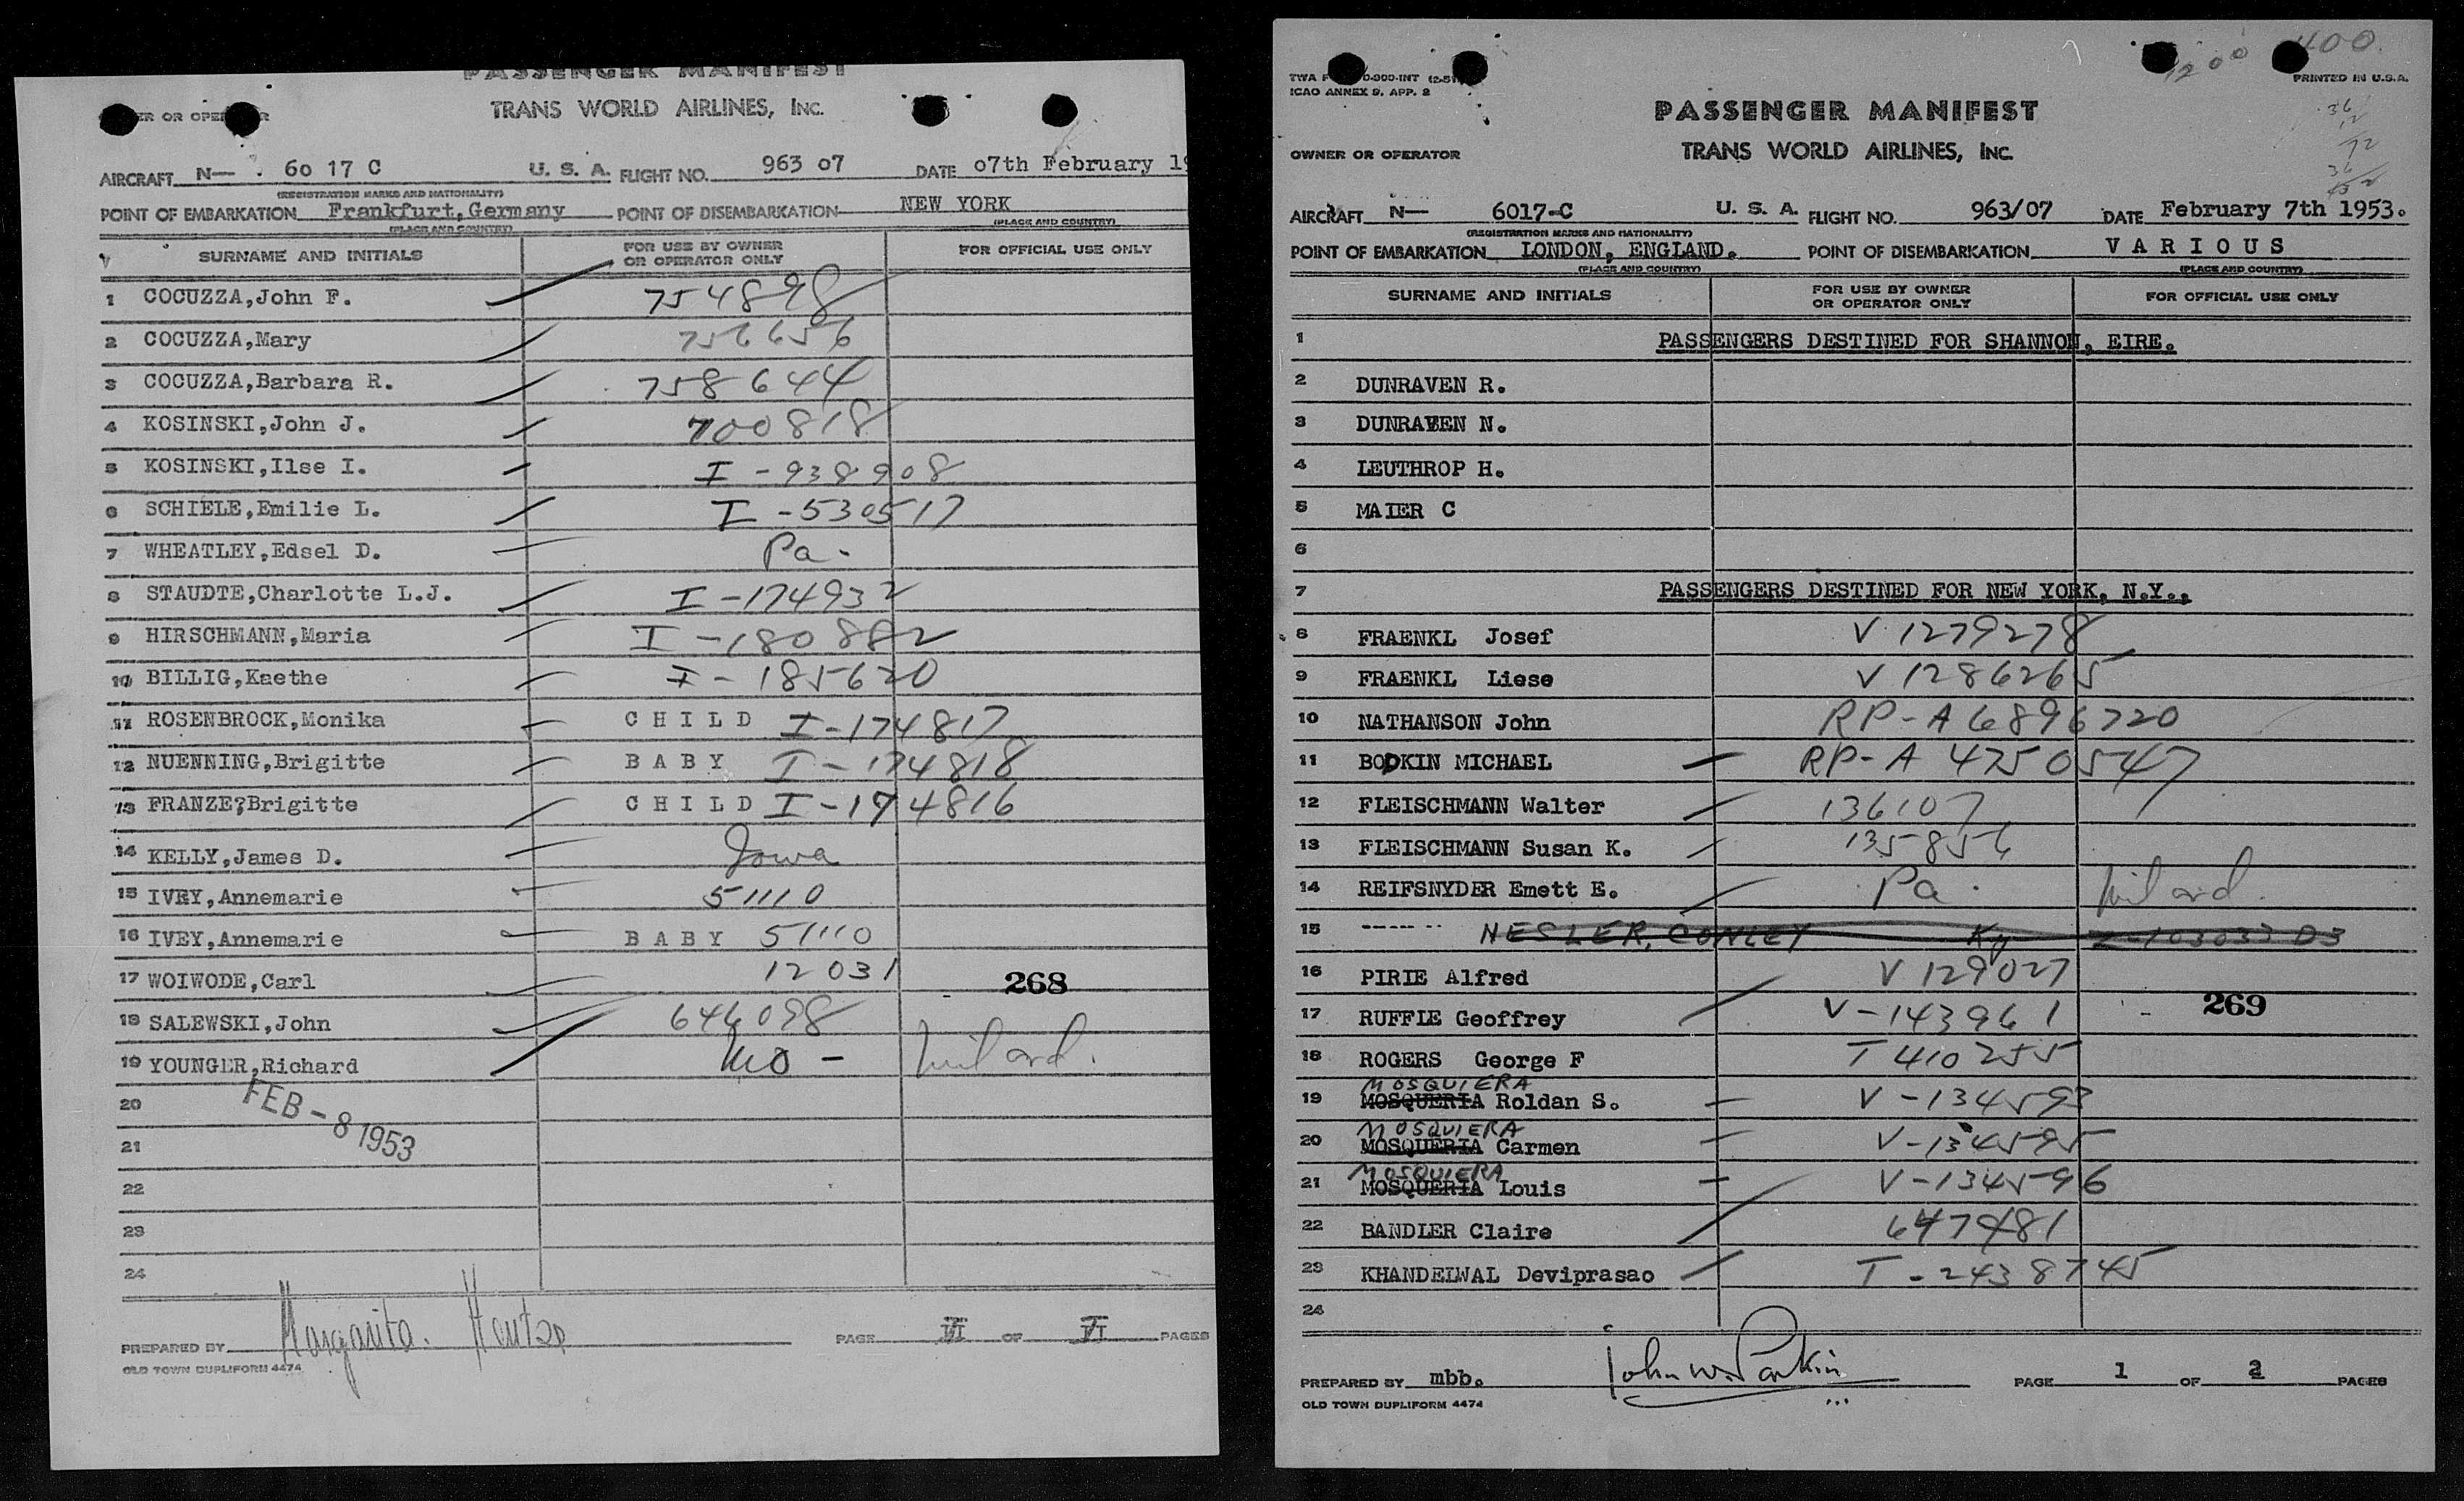 PASSENGER MANIFEST
TRANS WORLD AIRLINES, INC.
AIRCRAFT N— 60 17 C U. S. A. FLIGHT NO. 963 07 DATE 07th February
(REGISTRATION MARKS AND NATIONALITY)
POINT OF EMBARKATION Frankfurt, Germany POINT OF DISEMBARKATION NEW YORK
(PLACE AND COUNTRY) (PLACE AND COUNTRY)
SURNAME AND INITIALS FOR USE BY OWNER OR OPERATOR ONLY FOR OFFICIAL USE ONLY
1 COCUZZA,John F. 754898
2 COCUZZA,Mary 756656
3 COCUZZA,Barbara R. 758644
4 KOSINSKI,John J. 700818
5 KOSINSKI,Ilse I. I-938908
6 SCHIELE,Emilie L. I-530517
7 WHEATLEY,Edsel D. Pa.
8 STAUDTE,Charlotte L.J. I-174932
9 HIRSCHMANN,Maria I-180882
10 BILLIG,Kaethe I-185620
11 ROSENBROCK,Monika CHILD I-174817
12 NUENNING,Brigitte BABY I-174818
13 FRANZE,Brigitte CHILD I-174816
14 KELLY,James D. Iowa
15 IVEY,Annemarie 51110
16 IVEY,Annemarie BABY 51110
17 WOIWODE,Carl 12031 268
18 SALEWSKI,John 646098
19 YOUNGER,Richard Mo - mil ord.
20
FEB -8 1953
21
22
23
24
PREPARED BY Margarita PAGE OF VI PAGES
OLD TOWN DUPLIFORM 4474
1200 400
TWA
ICAO ANNEX 9, APP. 2
PRINTED IN U.S.A.
PASSENGER MANIFEST
36
12
72
36
OWNER OR OPERATOR
TRANS WORLD AIRLINES, INC.
AIRCRAFT N— 6017-C U. S. A. FLIGHT NO. 963/07 DATE February 7th 1953.
(REGISTRATION MARKS AND NATIONALITY)
POINT OF EMBARKATION LONDON, ENGLAND. POINT OF DISEMBARKATION VARIOUS
(PLACE AND COUNTRY) (PLACE AND COUNTRY)
SURNAME AND INITIALS FOR USE BY OWNER OR OPERATOR ONLY FOR OFFICIAL USE ONLY
1 PASSENGERS DESTINED FOR SHANNON, EIRE.
2 DUNRAVEN R.
3 DUNRAVEN N.
4 LEUTHROP H.
5 MAIER C
6
7 PASSENGERS DESTINED FOR NEW YORK, N.Y.,
8 FRAENKL Josef V 1279278
9 FRAENKL Liese V 1286265
10 NATHANSON John RP-A 6896720
11 BODKIN MICHAEL RP-A 4750547
12 FLEISCHMANN Walter 136107
13 FLEISCHMANN Susan K. 135856
14 REIFSNYDER Emett E. Pa. mil ord.
15 ------ NESLER, CONLEY Ky
16 PIRIE Alfred V 129027
17 RUFFIE Geoffrey V-143961 269
18 ROGERS George F T 410255
MOSQUIERA
19 MOSQUERIA Roldan S. V-134593
MOSQUIERA
20 MOSQUERIA Carmen V-134595
MOSQUIERA
21 MOSQUERIA Louis V-134596
22 BANDLER Claire 647481
23 KHANDELWAL Deviprasao T-2438745
24
PREPARED BY mbb. John W. Parkin PAGE 1 OF 2 PAGES
OLD TOWN DUPLIFORM 4474